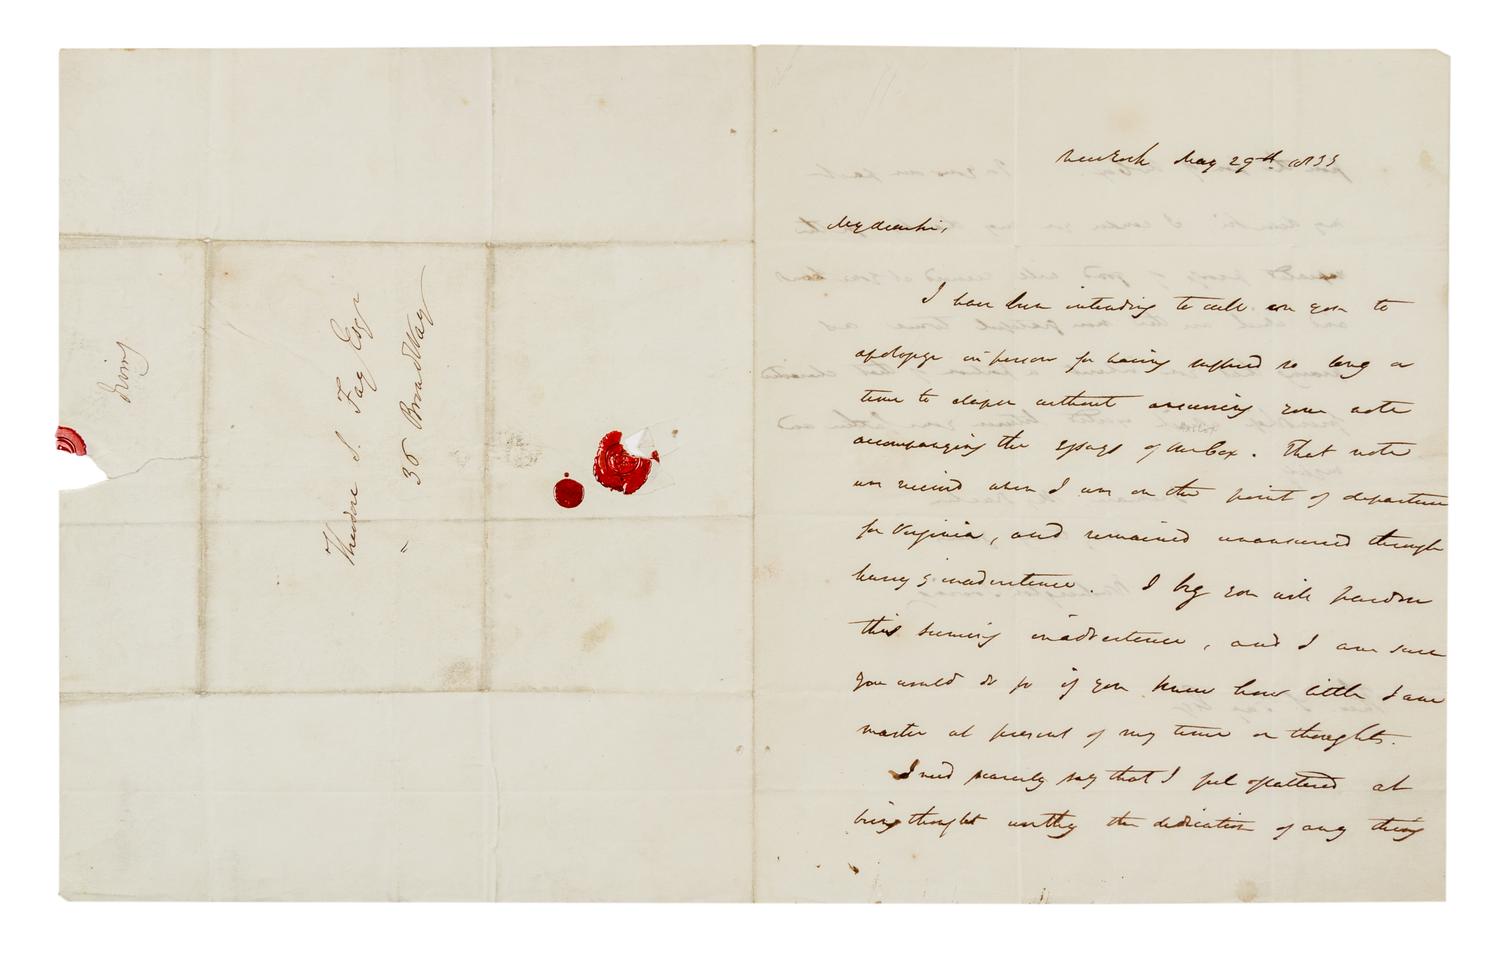 Irving
Theodore S. Fay Esqr
36 Broadway
New York May 29th 1833
My dear Sir,
I have been intending to call on you to
apologize in person for having suffered so long a
time to elapse without answering your note
accompanying the essays of . That note
was received when I was on the point of departure
for Virginia, and remained unanswered through
hurry & inadvertence. I beg you will pardon
this seeming inadvertence, and I am sure
you would do so if you knew how little I am
master at present of my time or thoughts.
I need scarcely say that I feel flattered at
being thought worthy the dedication of any thing